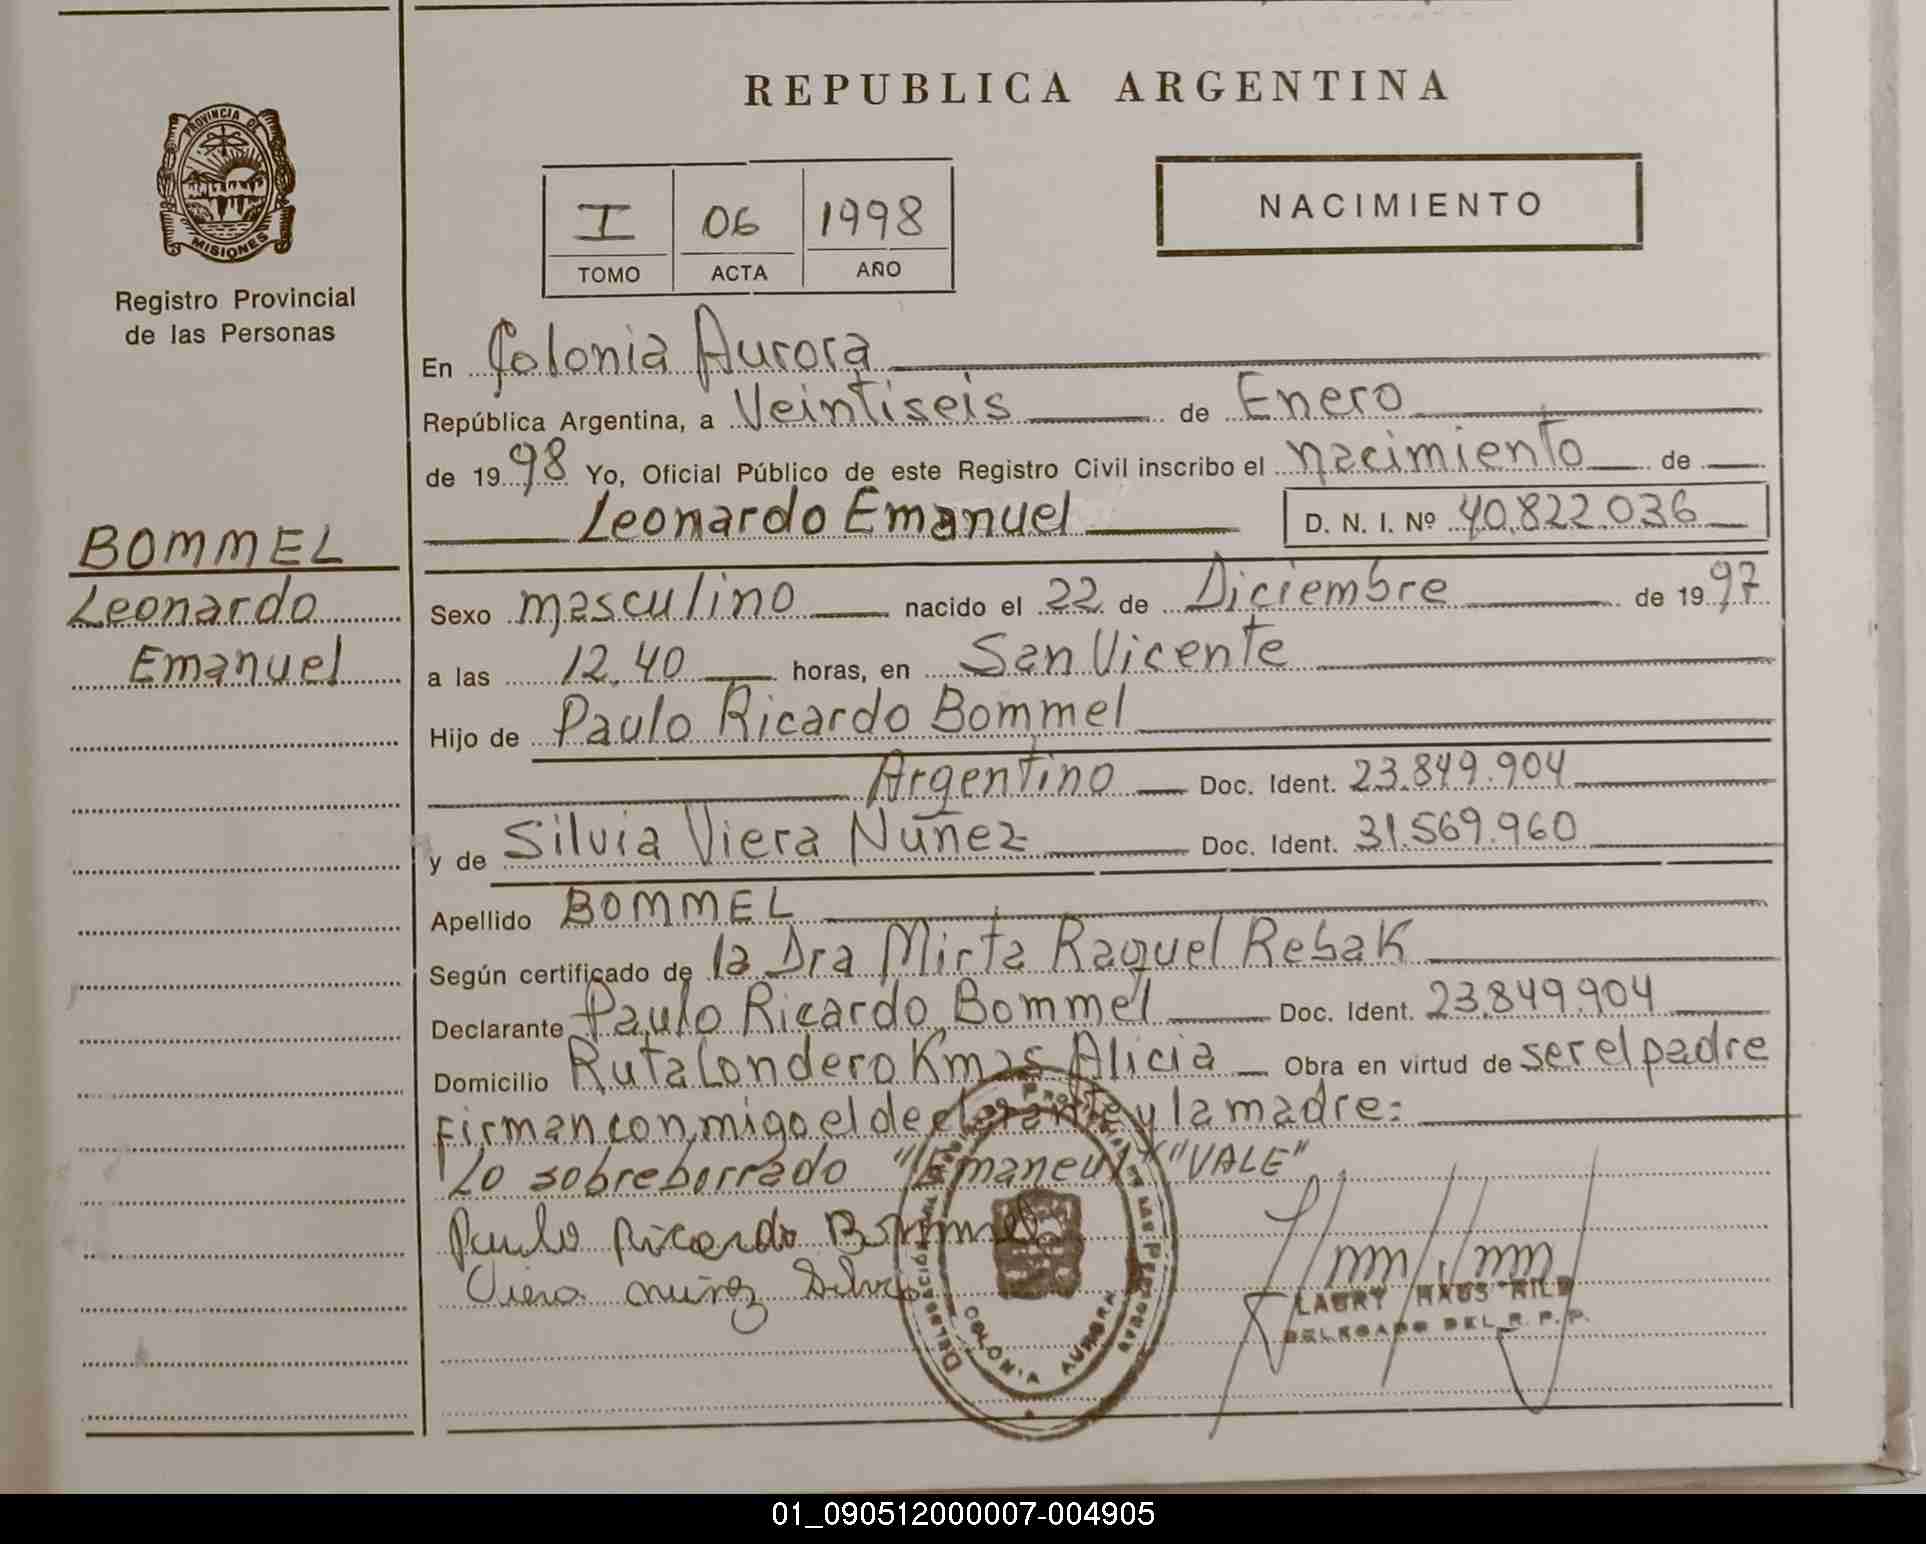 REPUBLICA ARGENTINA
PROVINCIA DE
MISIONES
Registro Provincial
de las Personas
NACIMIENTO
I 06 1998
TOMO ACTA AÑO
En Colonia Aurora
República Argentina, a Veintiseis de Enero
de 1998 Yo, Oficial Público de este Registro Civil inscribo el nacimiento de
Leonardo Emanuel D. N. I. Nº 40.822.036
BOMMEL
Leonardo
Emanuel
Sexo masculino nacido el 22 de Diciembre de 1997
a las 12,40 horas, en San Vicente
Hijo de Paulo Ricardo Bommel
Argentino Doc. Ident. 23.849.904
y de Silvia Viera Nuñez Doc. Ident. 31.569.960
Apellido BOMMEL
Según certificado de la Dra Mirta Raquel Rebak
Declarante Paulo Ricardo Bommel Doc. Ident. 23.849.904
Domicilio Ruta Londero Km 25 Alicia Obra en virtud de ser el padre
Firman conmigo el declarante y la madre:
Lo sobreborrado "Emaneul" "VALE"
Paulo Ricardo Bommel
Viera nuñez Silvia
COLONIA AURORA
DELEGADO DEL R. P. P.
01_090512000007-004905